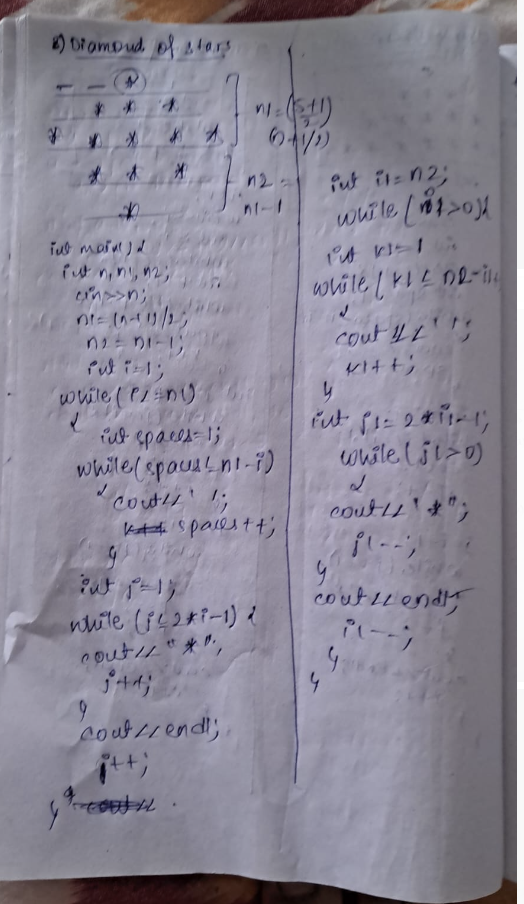 8) Diamond of stars
_ _ *
* * *
* * * * *
* * *
*
n1 = (5+1)/2
(n+1/2)
n2 =
n1-1
int main() {
int n, n1, n2;
cin>>n;
n1=(n+1)/2;
n2 = n1-1;
int i=1;
while(i<=n1)
{
int spaces=1;
while(spaces≤n1-i)
{ cout<<' ';
spaces++;
}
int j=1;
while (j≤2*i-1) {
cout<< "*";
j++;
}
cout<<endl;
i++;
}
int i1=n2;
while(i1>0){
int k1=1
while(k1≤n2-i1
{
cout<<' ';
k1++;
}
int j1=2*i1-1;
while(j1>0)
{
cout<<"*";
j1--;
}
cout<<endl;
i1--;
}
}